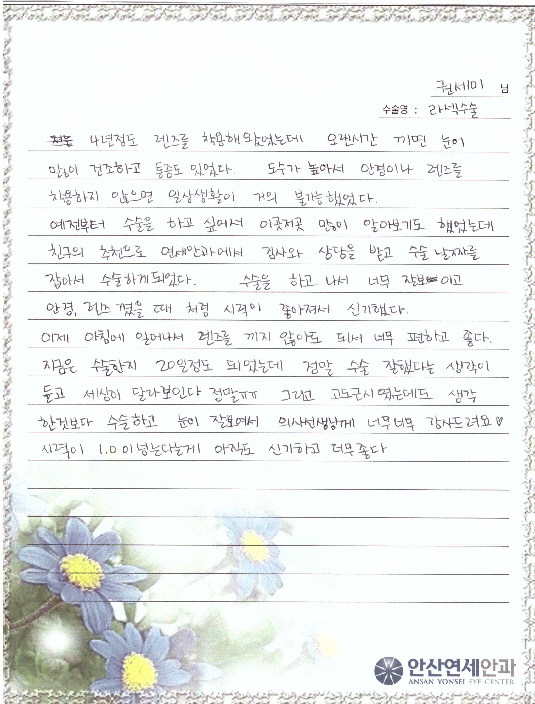 권세미 님
수술명 : 라섹수술
4년정도 렌즈를 착용해 왔었는데 오랜시간 끼면 눈이
많이 건조하고 통증도 있었다. 도수가 높아서 안경이나 렌즈를
착용하지 않으면 일상생활이 거의 불가능했었다.
예전부터 수술을 하고 싶어서 이곳저곳 많이 알아보기도 했었는데
친구의 추천으로 연세안과에서 검사와 상담을 받고 수술 날짜를
잡아서 수술하게되었다. 수술을 하고 나서 너무 잘보이고
안경, 렌즈 꼈을 때 처럼 시력이 좋아져서 신기했다.
이제 아침에 일어나서 렌즈를 끼지 않아도 되서 너무 편하고 좋다.
지금은 수술한지 20일정도 되었는데 정말 수술 잘했다는 생각이
듣고 세상이 달라보인다 정말ㅠㅠ 그리고 고도근시였는데도 생각
한것보다 수술하고 눈이 잘보여서 의사선생님께 너무너무 감사드려요♡
시력이 1.0 이넘는다는게 아직도 신기하고 너무좋다
안산연세안과
ANSAN YONSEI EYE CENTER